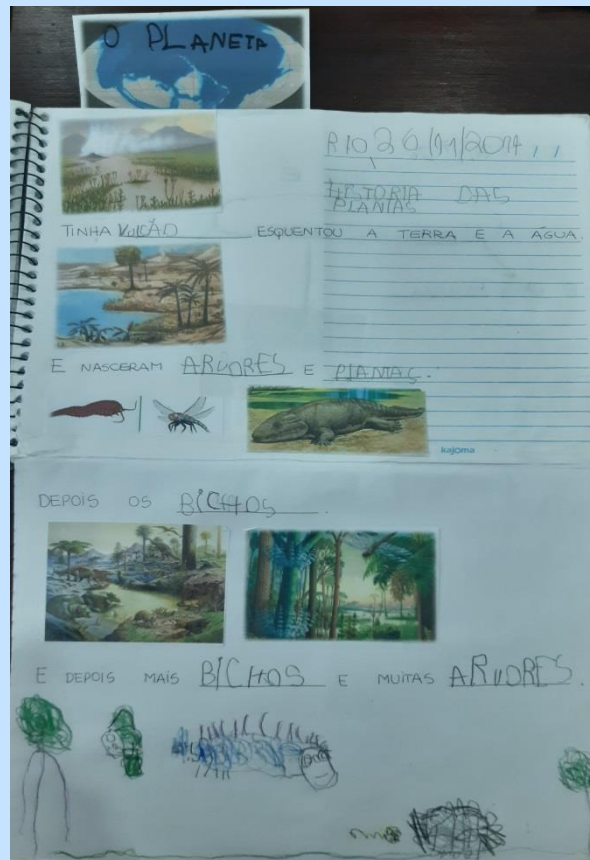 O PLANETA
RIO 26/11/2014
HISTORIA DAS
PLANTAS
TINHA VULCÃO ESQUENTOU A TERRA E A ÁGUA.
E NASCERAM ARVORES E PLANTAS.
kajoma
DEPOIS OS BICHOS.
E DEPOIS MAIS BICHOS E MUITAS ARVORES.